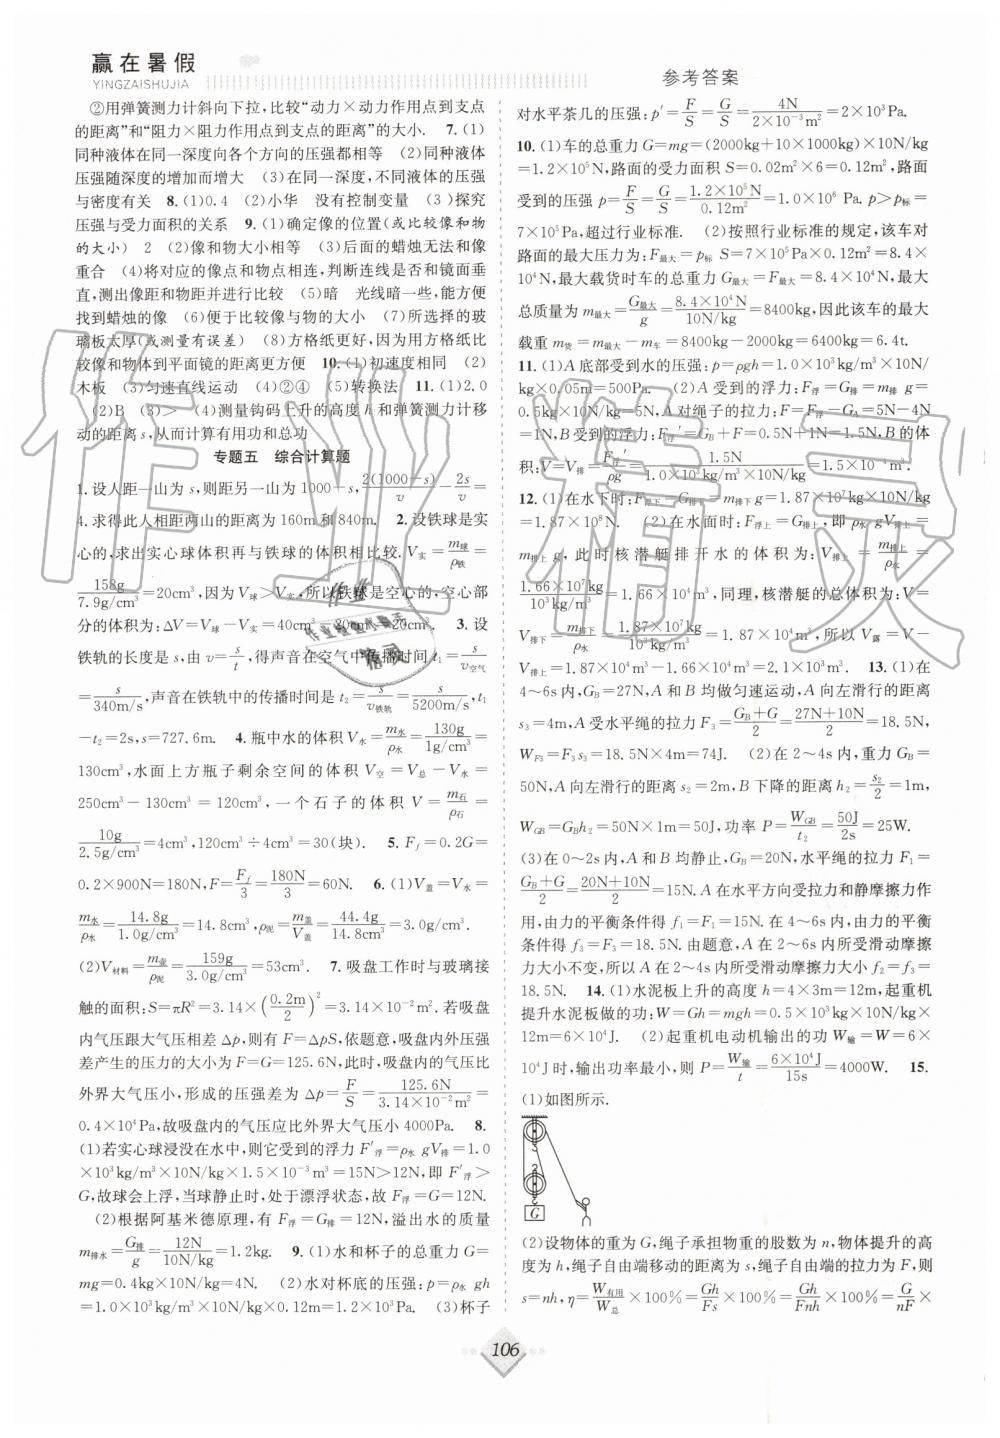 赢在暑假
YINGZAISHUJIA
参考答案
②用弹簧测力计斜向下拉，比较“动力×动力作用点到支点
的距离”和“阻力×阻力作用点到支点的距离”的大小. 7.(1)
同种液体在同一深度向各个方向的压强都相等 (2)同种液体
压强随深度的增加而增大 (3)在同一深度，不同液体的压强
与密度有关 8.(1)0.4 (2)小华 没有控制变量 (3)探究
压强与受力面积的关系 9.(1)确定像的位置(或比较像和物
的大小) 2 (2)像和物大小相等 (3)后面的蜡烛无法和像
重合 (4)将对应的像点和物点相连，判断连线是否和镜面垂
直，测出像距和物距并进行比较 (5)暗 光线暗一些，能方便
找到蜡烛的像 (6)便于比较像与物的大小 (7)所选择的玻
璃板太厚(或测量有误差) (8)方格纸更好，因为用方格纸比
较像和物体到平面镜的距离更方便 10.(1)初速度相同 (2)
木板 (3)匀速直线运动 (4)②④ (5)转换法 11.(1)2.0
(2)B (3)> (4)测量钩码上升的高度h和弹簧测力计移
动的距离s，从而计算有用功和总功
专题五 综合计算题
1.设人距一山为s，则距另一山为1000-s，2(1000-s)/v-2s/v=
4.求得此人相距两山的距离为160m和840m. 2.设铁球是实
心的，求出实心球体积再与铁球的体积相比较.V实=m球/ρ铁=
158g/7.9g/cm³=20cm³，因为V球>V实，所以铁球是空心的，空心部
分的体积为:ΔV=V球-V实=40cm³-20cm³=20cm³. 3.设
铁轨的长度是s，由v=s/t，得声音在空气中传播时间t1=s/v空气
=s/340m/s，声音在铁轨中的传播时间是t2=s/v铁轨=s/5200m/s，t1
-t2=2s，s=727.6m. 4.瓶中水的体积V水=m水/ρ水=130g/1g/cm³=
130cm³，水面上方瓶子剩余空间的体积V空=V总-V水=
250cm³-130cm³=120cm³，一个石子的体积V=m石/ρ石=
10g/2.5g/cm³=4cm³，120cm³÷4cm³=30(块). 5.Ff=0.2G=
0.2×900N=180N，F=Ff/3=180N/3=60N. 6.(1)V盖=V水=
m水/ρ水=14.8g/1.0g/cm³=14.8cm³，ρ泥=m盖/V盖=44.4g/14.8cm³=3.0g/cm³.
(2)V材料=m壶/ρ泥=159g/3.0g/cm³=53cm³. 7.吸盘工作时与玻璃接
触的面积:S=πR²=3.14×(0.2m/2)²=3.14×10⁻²m².若吸盘
内气压跟大气压相差Δp，则有F=ΔpS，依题意，吸盘内外压强
差产生的压力的大小为F=G=125.6N，此时，吸盘内的气压比
外界大气压小，形成的压强差为Δp=F/S=125.6N/3.14×10⁻²m²=
0.4×10⁴Pa，故吸盘内的气压应比外界大气压小4000Pa. 8.
(1)若实心球浸没在水中，则它受到的浮力F′浮=ρ水gV排=1.0
×10³kg/m³×10N/kg×1.5×10⁻³m³=15N>12N，即F′浮>
G，故球会上浮，当球静止时，处于漂浮状态，故F浮=G=12N.
(2)根据阿基米德原理，有F浮=G排=12N，溢出水的质量
m排水=G排/g=12N/10N/kg=1.2kg. 9.(1)水和杯子的总重力G=
mg=0.4kg×10N/kg=4N. (2)水对杯底的压强:p=ρ水gh
=1.0×10³kg/m³×10N/kg×0.12m=1.2×10³Pa. (3)杯子
对水平茶几的压强:p′=F/S=G/S=4N/2×10⁻³m²=2×10³Pa.
10.(1)车的总重力G=mg=(2000kg+10×1000kg)×10N/kg
=1.2×10⁵N，路面的受力面积S=0.02m²×6=0.12m²，路面
受到的压强p=F/S=G/S=1.2×10⁵N/0.12m²=1.0×10⁶Pa.p>p标=
7×10⁵Pa，超过行业标准. (2)按照行业标准的规定，该车对
路面的最大压力为:F最大=p标S=7×10⁵Pa×0.12m²=8.4×
10⁴N，最大载货时车的总重力G最大=F最大=8.4×10⁴N，最大
总质量为m最大=G最大/g=8.4×10⁴N/10N/kg=8400kg，因此该车的最大
载重m货=m最大-m车=8400kg-2000kg=6400kg=6.4t.
11.(1)A底部受到水的压强:p=ρgh=1.0×10³kg/m³×10N/
kg×0.05m=500Pa. (2)A受到的浮力:F浮=G排=m排g=
0.5kg×10N/kg=5N，A对绳子的拉力:F=F浮-GA=5N-4N
=1N，B受到的浮力:F浮′=GB+F=0.5N+1N=1.5N，B的体
积:V=V排=F浮′/ρg=1.5N/1.0×10³kg/m³×10N/kg=1.5×10⁻⁴m³.
12.(1)在水下时:F浮下=G排下=m排下g=1.87×10⁷kg×10N/kg
=1.87×10⁸N. (2)在水面时:F浮上=G排上，即ρ水gV排上=
m排上g，此时核潜艇排开水的体积为:V排上=m排上/ρ水=
1.66×10⁷kg/10³kg/m³=1.66×10⁴m³，同理，核潜艇的总体积为:V=
V排下=m排下/ρ水=1.87×10⁷kg/10³kg/m³=1.87×10⁴m³，所以V露=V-
V排上=1.87×10⁴m³-1.66×10⁴m³=2.1×10³m³. 13.(1)在
4～6s内，GB=27N，A和B均做匀速运动，A向左滑行的距离
s3=4m，A受水平绳的拉力F3=GB+G/2=27N+10N/2=18.5N，
WF3=F3s3=18.5N×4m=74J. (2)在2～4s内，重力GB=
50N，A向左滑行的距离s2=2m，B下降的距离h2=s2/2=1m，
WGB=GBh2=50N×1m=50J，功率P=WGB/t2=50J/2s=25W.
(3)在0～2s内，A和B均静止，GB=20N，水平绳的拉力F1=
GB+G/2=20N+10N/2=15N.A在水平方向受拉力和静摩擦力作
用，由力的平衡条件得f1=F1=15N.在4～6s内，由力的平衡
条件得f3=F3=18.5N.由题意，A在滑动中所受滑动摩擦
力大小不变，所以A在2～4s内所受滑动摩擦力f2=f3=
18.5N. 14.(1)水泥板上升的高度h=4×3m=12m，起重机
提升水泥板做的功:W=Gh=mgh=0.5×10³kg×10N/kg×
12m=6×10⁴J. (2)起重机电动机输出的功W输=W=6×
10⁴J时，输出功率最小，则P=W输/t=6×10⁴J/15s=4000W. 15.
(1)如图所示.
G
(2)设物体的重为G，绳子承担物重的股数为n，物体提升的高
度为h，绳子自由端移动的距离为s，绳子自由端的拉力为F，则
s=nh，η=W有用/W总×100%=Gh/Fs×100%=Gh/Fnh×100%=G/nF×
106
作业精灵